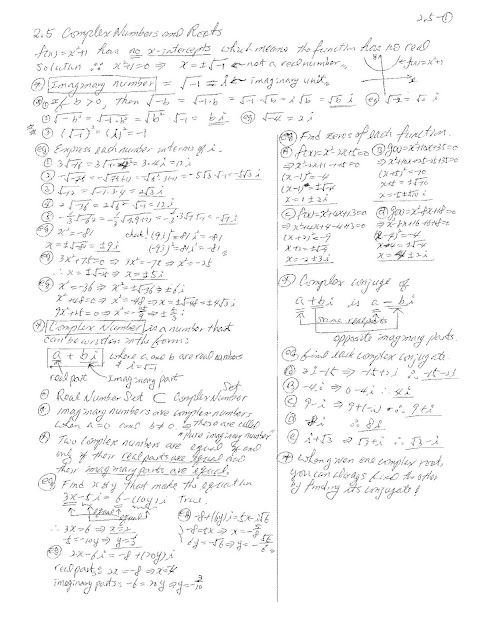 2.5-①
2.5 Complex Numbers and Roots
f(x)=x²+1 has no x-intercepts which means the function has no real
Solution ∵ x²+1=0 ⇒ x=±√-1 ← not a real number
f(x)=x²+1
Imaginary number = √-1 = i ← imaginary unit
If b>0, then √-b = √-1·b = √-1·√b = i√b = √b i
① √-b² = √-1·b² = √b²·√-1 = b i
√-4 = 2i
③ (√-1)² = (i)² = -1
eg Express each number in terms of i.
① 3√-16 = 3√-1·16 = 3·4i = 12i
√-12 = √-1·3·4 = 2√3 i
eg x² = -81
x=±√-81 = ±9i
check! (9i)² = 81i² = -81
(-9i)² = 81i² = -81
eg 3x²+75=0 ⇒ 3x²=-75 ⇒ x²=-25
∴ x=±√-25 ⇒ x=±5i
eg x²=-36 ⇒ x=±√-36 ⇒ ±6i
x²+48=0 ⇒ x²=-48 ⇒ x=±√-48 = ±4√3 i
Complex Number is a number that
can be written in the form:
a + bi where a and b are real numbers
& i=√-1
real part Imaginary part
Real Number Set ⊂ Complex Number Set
Imaginary numbers are complex numbers
when a=0 and b≠0 these are called
"Pure imaginary number"
Two complex numbers are equal if and
only if their real parts are equal and
their imaginary parts are equal.
eg Find x & y that make the equation
3x-5i = 6-(10y)i true.
equal
equal
∴ 3x=6 ⇒ x=2
-5=-10y ⇒ y=½
eg 2x-6i = -8+(20y)i
real parts: 2x=-8 ⇒ x=-4
imaginary parts: -6=20y ⇒ y=-3/10
eg -8+(6y)i = 5x-i√6
-8=5x ⇒ x=-8/5
6y=-√6 ⇒ y=-√6/6
eg Find zeros of each function.
Ⓐ f(x)=x²-2x+5=0
⇒ x²-2x+1=-5+1
(x-1)²=-4
x-1=±√-4
x=1±2i
Ⓑ g(x)=x²+10x+35=0
⇒ x²+10x+25=-35+25
(x+5)²=-10
x+5=±√-10
x=-5±√10 i
Ⓒ f(x)=x²+4x+13=0
⇒ x²+4x+4=-13+4
(x+2)²=-9
x+2=±√-9
x=-2±3i
g(x)=x²-8x+18=0
x=4±√2 i
Complex conjugate of
a+bi is a-bi
same real parts
opposite imaginary parts.
eg find each complex conjugate.
Ⓐ 2i-15 ⇒ -15+2i ∴ -15-2i
Ⓑ -4i ⇒ 0-4i ∴ 4i
Ⓒ 9-i ⇒ 9+(-i) ∴ 9+i
-8i ∴ 8i
Ⓔ i+√3 ⇒ √3+i ∴ √3-i
When given one complex root,
you can always find the other
by finding its conjugate!